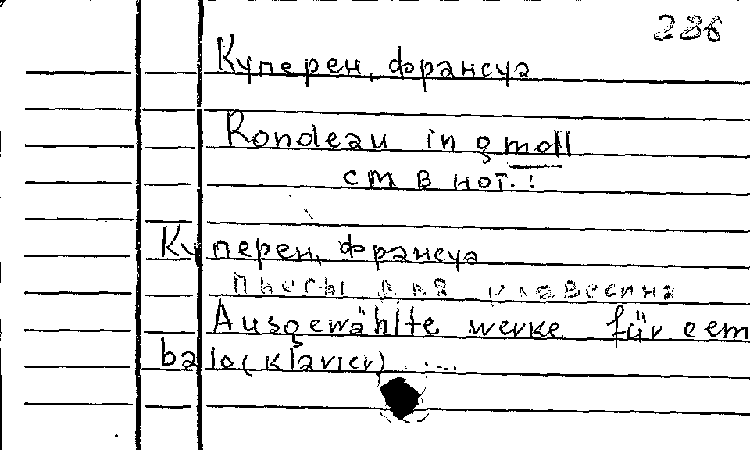 236
Куперен, Франсуа
Rondeau in g moll
см в нот. :
Куперен, Франсуа
Пьесы для клавесина
Ausgewählte werke für cem
balo (klavier) ....